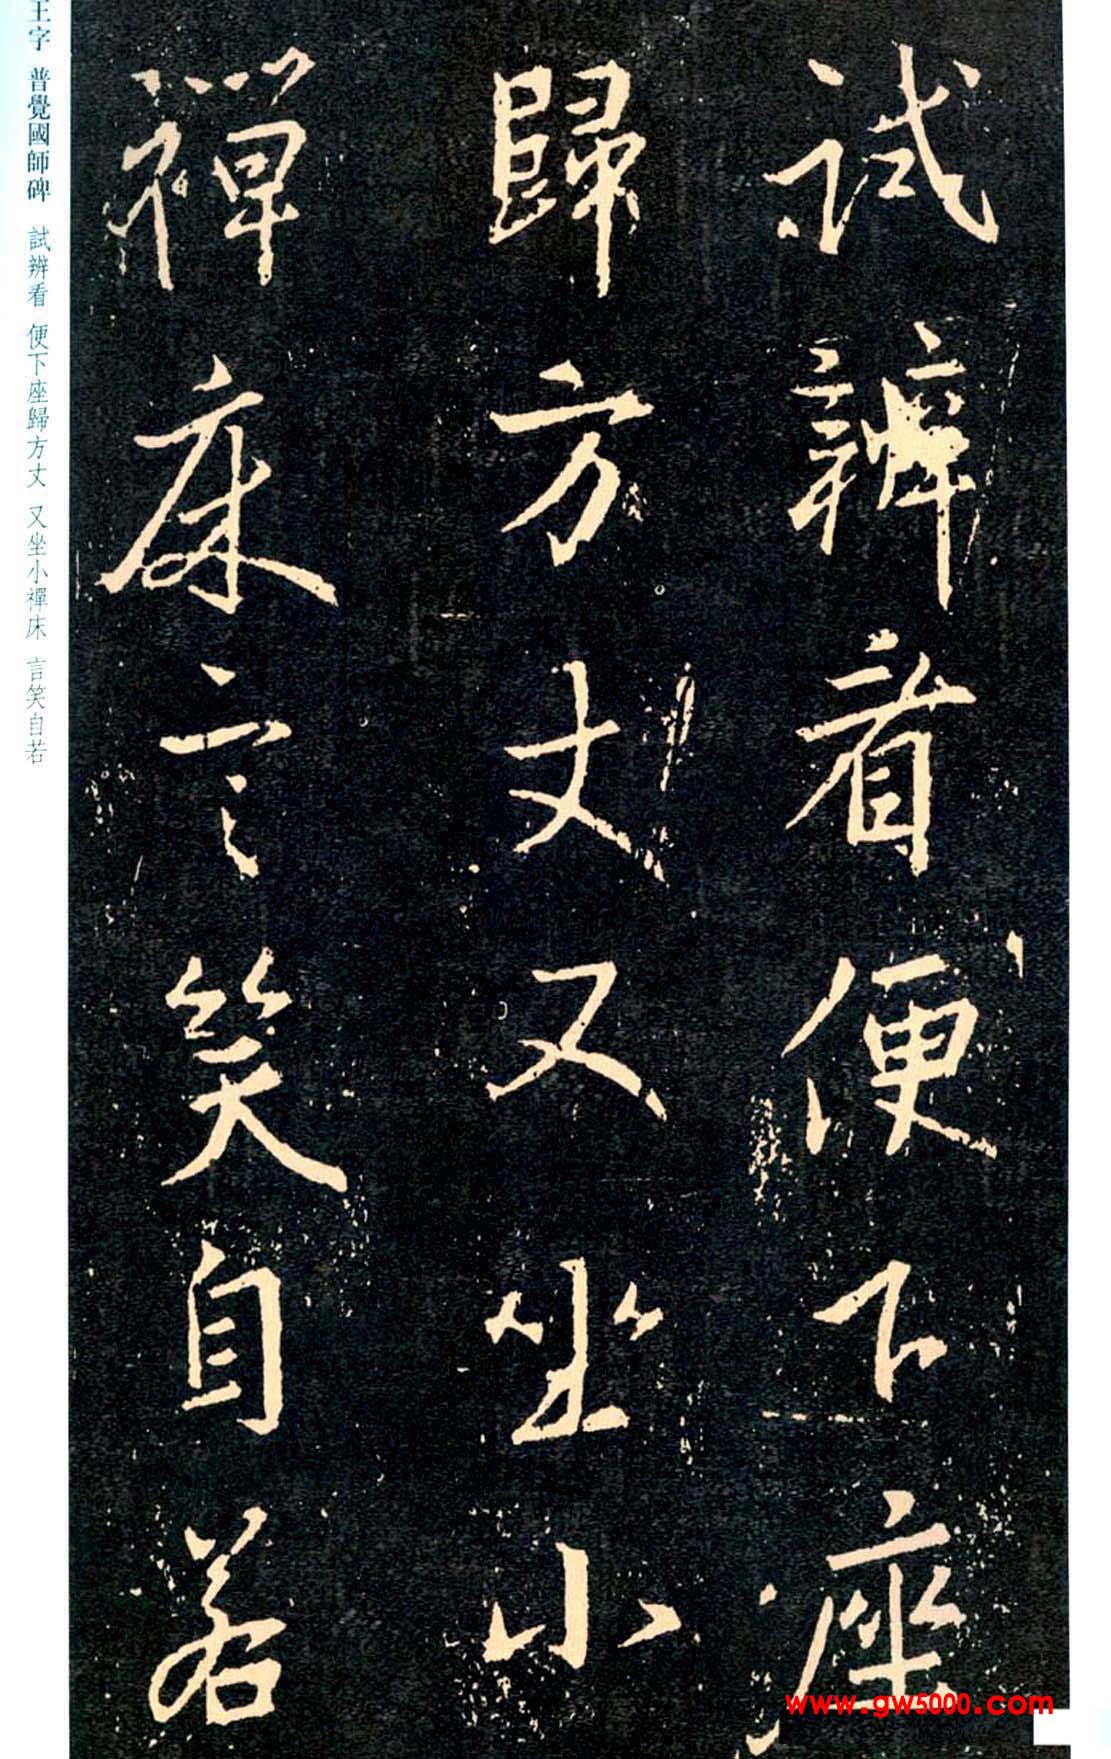 試辨看便下座
歸方丈又坐小
禪床言笑自若
王字 普覺國師碑 試辨看 便下座歸方丈 又坐小禪床 言笑自若
www.gw5000.com